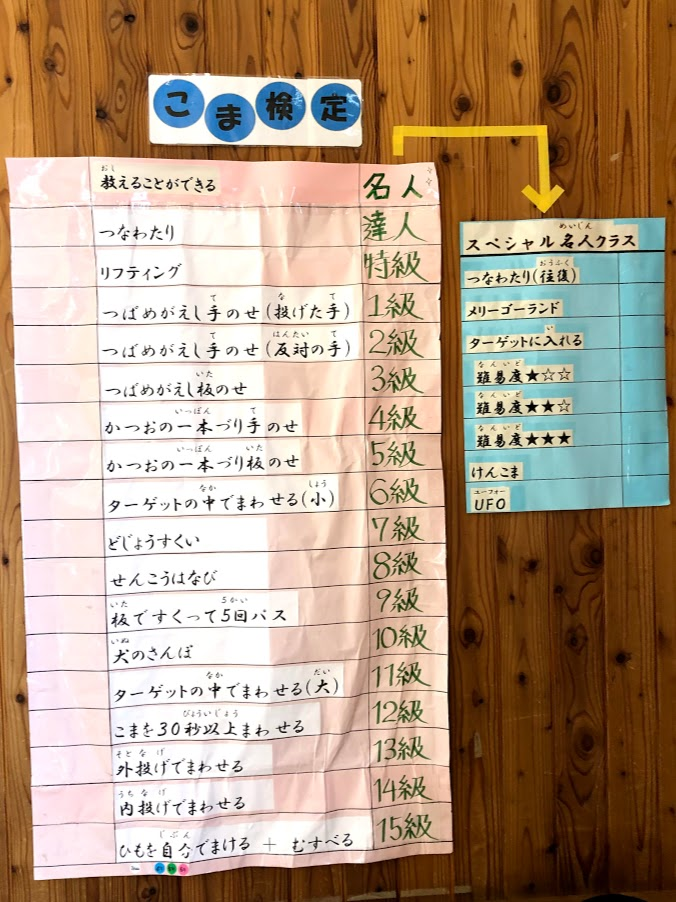 こま検定
教えることができる 名人
つなわたり 達人
リフティング 特級
つばめがえし手のせ(投げた手) 1級
つばめがえし手のせ(反対の手) 2級
つばめがえし板のせ 3級
かつおの一本づり手のせ 4級
かつおの一本づり板のせ 5級
ターゲットの中でまわせる(小) 6級
どじょうすくい 7級
せんこうはなび 8級
板ですくって5回パス 9級
犬のさんぽ 10級
ターゲットの中でまわせる(大) 11級
こまを30秒以上まわせる 12級
外投げでまわせる 13級
内投げでまわせる 14級
ひもを自分でまける + むすべる 15級
スペシャル名人クラス
つなわたり(往復)
メリーゴーランド
ターゲットに入れる
難易度★☆☆
難易度★★☆
難易度★★★
けんこま
UFO